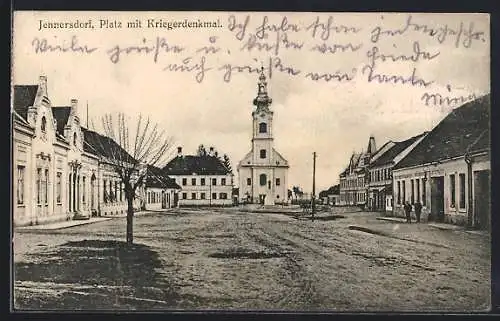 Jennersdorf, Platz mit Kriegerdenkmal.
Ich habe schon jedem gesch.
Viele grüße u. Küsse von
auch grüße von Tante